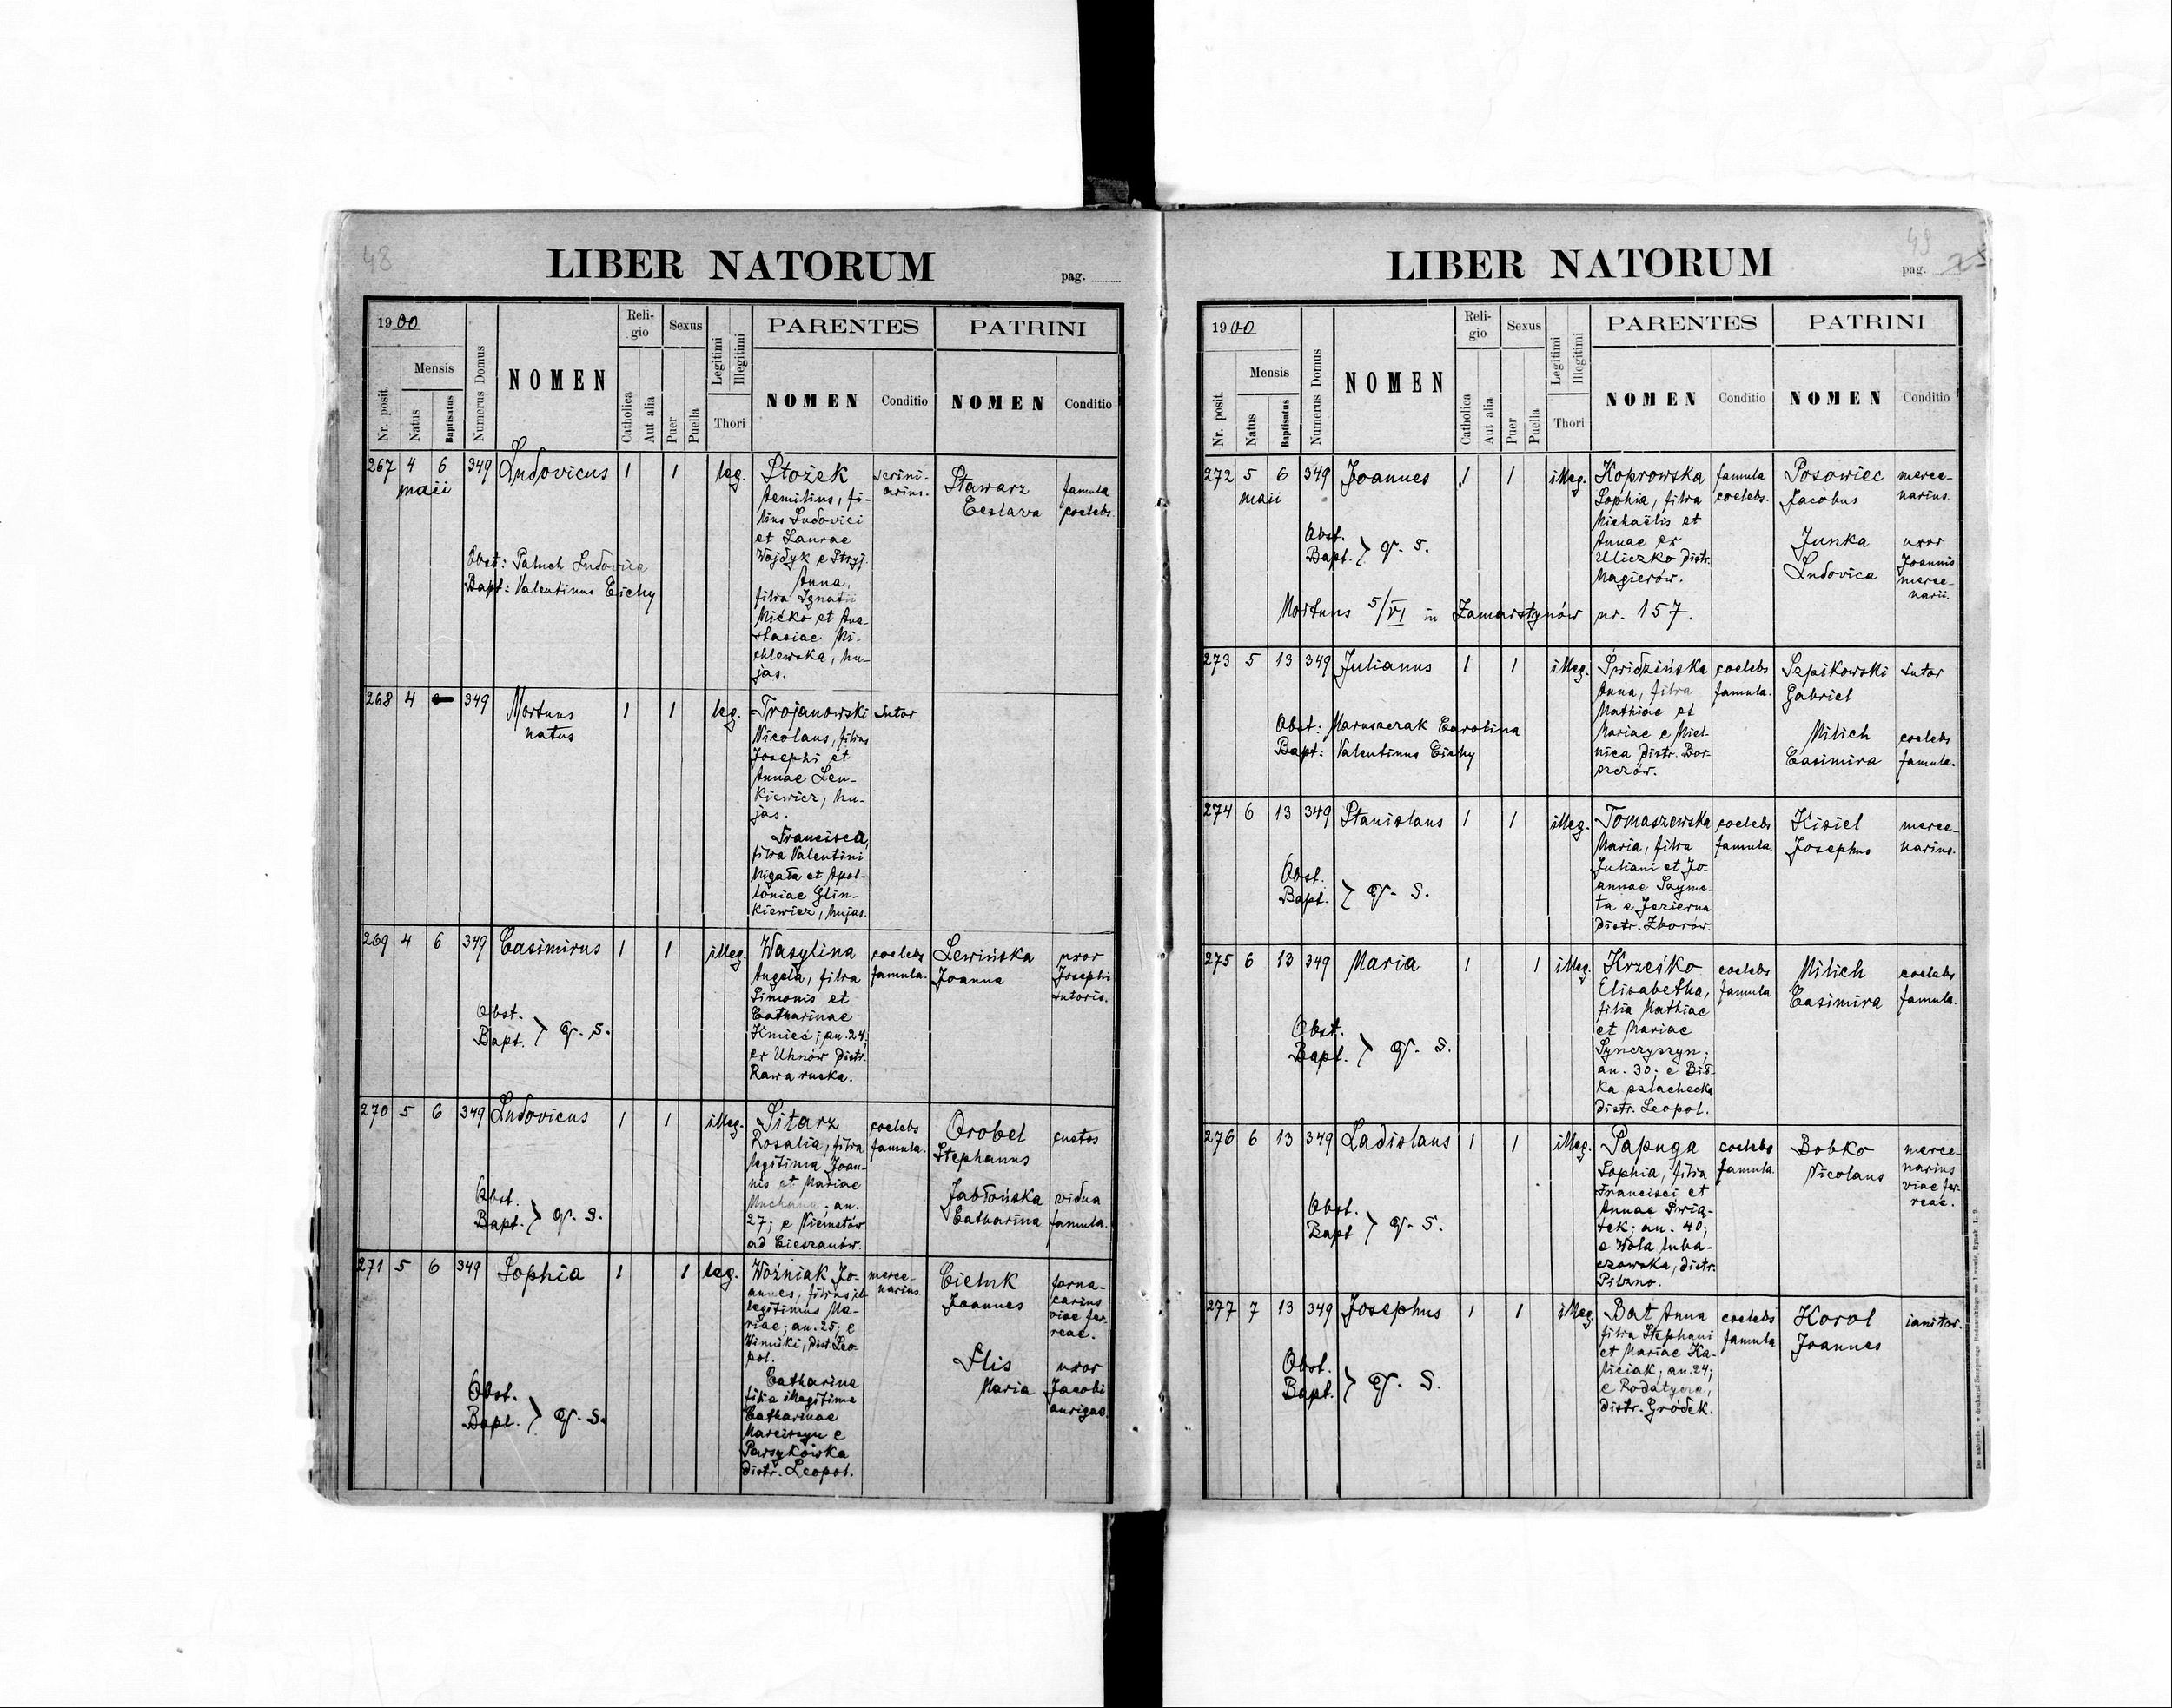 48
LIBER NATORUM
pag.
1900
Nr. posit.
Mensis
Natus
Baptisatus
Numerus Domus
NOMEN
Reli-
gio
Catholica
Aut alia
Sexus
Puer
Puella
Legitimi
Illegitimi
Thori
PARENTES
NOMEN
Conditio
PATRINI
NOMEN
Conditio
267 4 6 349 Ludovicus 1 1 leg.
maii
Stożek
Aemilius, fi-
lius Ludovici
et Laurae
Wójdyk e Stryj.
Anna,
filia Ignatii
Mićko et Ana-
stasiae Mi-
chlewska, hu-
jas.
scrini-
arius.
Stawarz
Ceslava
famula
coelebs.
Obst: Paluch Ludovica
Bapt: Valentinus Cichy
268 4 349 Mortuus
natus
1 1 leg.
Trojanowski
Nicolaus, filius
Josephi et
Annae Len-
kiewicz, hu-
jas.
Francisca,
filia Valentini
Migała et Apol-
loniae Glin-
kiewicz, hujas.
sutor
269 4 6 349 Casimirus 1 1 illeg.
Wasylina
Angela, filia
Simonis et
Catharinae
Kmieć; an. 24;
ex Uhnów distr.
Rawa ruska.
coelebs
famula.
Lewińska
Joanna
uxor
Josephi
sutoris.
Obst.
Bapt. } q. s.
270 5 6 349 Ludovicus 1 1 illeg.
Sitarz
Rosalia, filia
legitima Joan-
nis et Mariae
an.
27; e Niemstów
ad Cieszanów.
coelebs
famula.
Orobel
Stephanus
custos
Jabłońska
Catharina
vidua
famula.
Obst.
Bapt. } q. s.
271 5 6 349 Sophia 1 1 leg.
Woźniak Jo-
annes, filius il-
legitimus Ma-
riae; an. 25; e
Winniki, distr. Leo-
pol.
Catharina
filia illegitima
Catharinae
Marciszyn e
Parsykówka
distr. Leopol.
merce-
narius
Cieluk
Joannes
forna-
carius
viae fer-
reae.
Slis
Maria
uxor
Jacobi
aurigae.
Obst.
Bapt. } q. s.
49
LIBER NATORUM
pag.
1900
Nr. posit.
Mensis
Natus
Baptisatus
Numerus Domus
NOMEN
Reli-
gio
Catholica
Aut alia
Sexus
Puer
Puella
Legitimi
Illegitimi
Thori
PARENTES
NOMEN
Conditio
PATRINI
NOMEN
Conditio
272 5 6 349 Joannes 1 1 illeg.
maii
Koprowska
Sophia, filia
Michaëlis et
Annae ex
Uliczko distr.
Magierów.
famula
coelebs.
Posowiec
Jacobus
merce-
narius.
Junka
Ludovica
uxor
Joannis
merce-
narii.
Obst.
Bapt. } q. s.
Mortuus 5/VI in Zamarstynów nr. 157.
273 5 13 349 Julianus 1 1 illeg.
Świdzińska
Anna, filia
Mathiae et
Mariae e Miel-
nica distr. Bor-
szczów.
coelebs
famula.
Szpikowski
Gabriel
sutor
Milich
Casimira
coelebs
famula.
Obst: Maruszczak Carolina
Bapt: Valentinus Cichy
274 6 13 349 Stanislaus 1 1 illeg.
Tomaszewska
Maria, filia
Juliani et Jo-
annae Szyme-
ta e Jezierna
distr. Zborów.
coelebs
famula.
Kisiel
Josephus
merce-
narius.
Obst.
Bapt. } q. s.
275 6 13 349 Maria 1 1 illeg.
Krześko
Elisabetha,
filia Mathiae
et Mariae
Synczyszyn;
an. 30; e Bił-
ka szlachecka
distr. Leopol.
coelebs
famula
Milich
Casimira
coelebs
famula.
Obst.
Bapt. } q. s.
276 6 13 349 Ladislaus 1 1 illeg.
Papuga
Sophia, filia
Francisci et
Annae Świą-
tek; an. 40;
e Wola luba-
czowska, distr.
Pilzno.
coelebs
famula.
Bobko
Nicolaus
merce-
narius
viae fer-
reae.
Obst.
Bapt } q. s.
277 7 13 349 Josephus 1 1 illeg.
Bat Anna
filia Stephani
et Mariae Ka-
liciak; an. 24;
e Rodatycze,
distr. Gródek.
coelebs
famula
Korol
Joannes
ianitor.
Obst.
Bapt. } q. s.